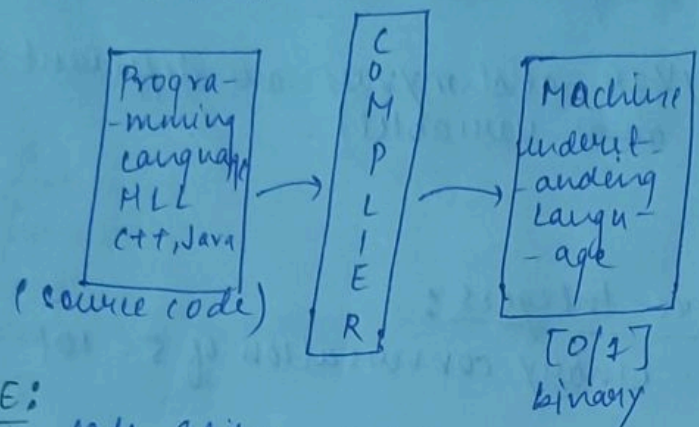 Progra-
-mming
Language
HLL
C++, Java
(source code)
C
O
M
P
L
I
E
R
Machine
underst-
-anding
Langu-
-age
[0/1]
binary
E: